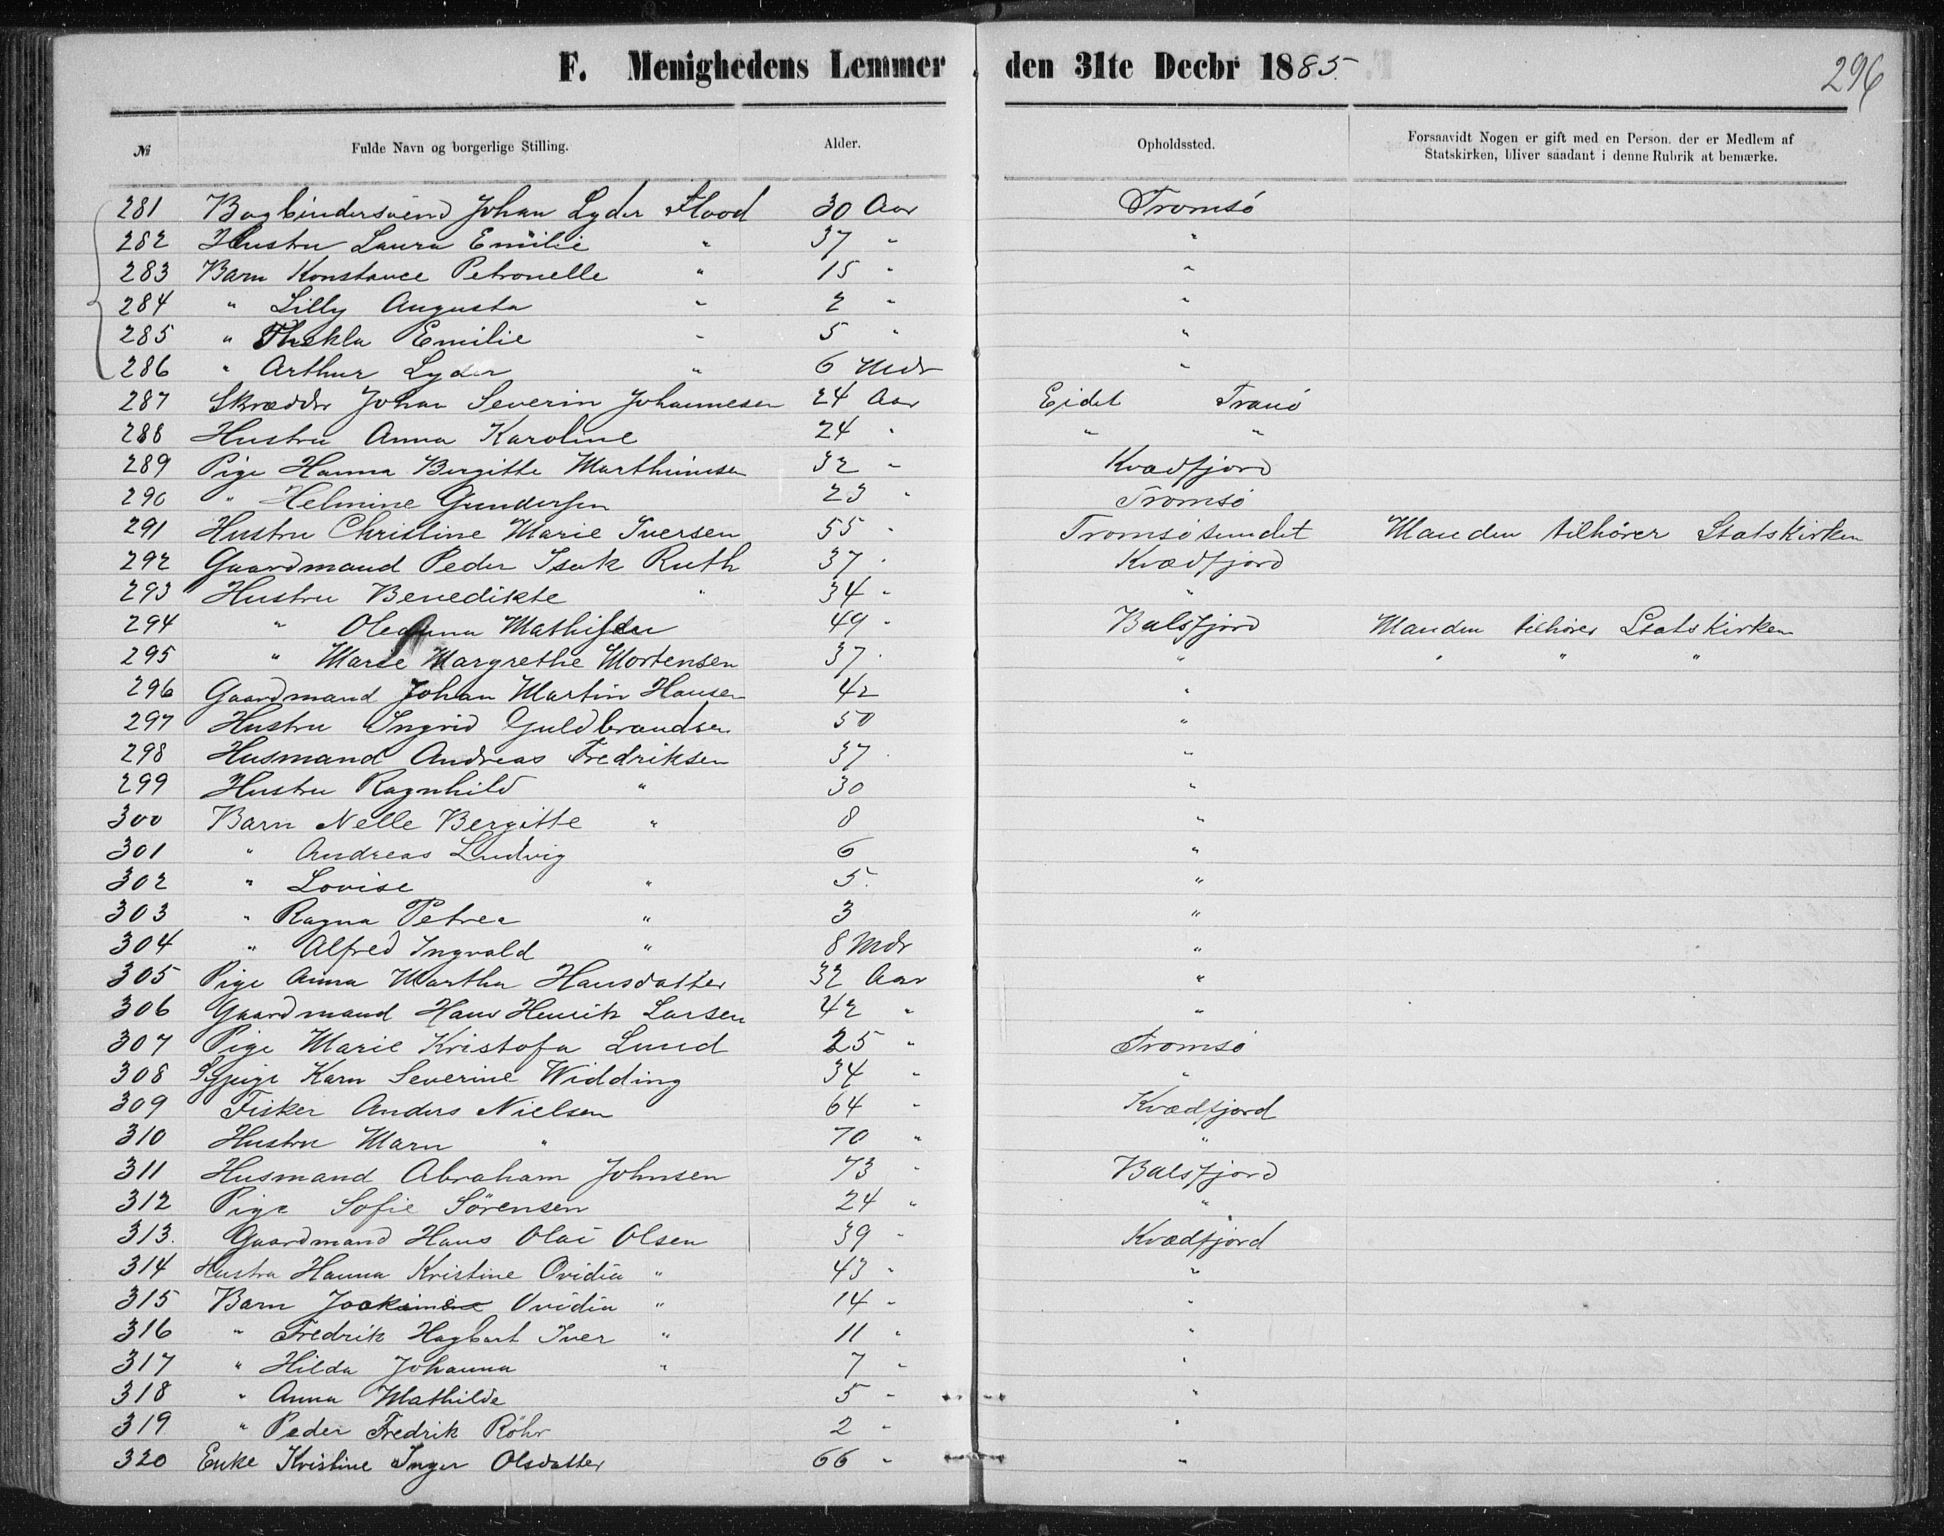 F. Menighedens Lemmer den 31te Decbr 1885.
296
№ Fulde Navn og borgerlige Stilling. Alder. Opholdssted. Forsaavidt Nogen er gift med en Person, der er Medlem af
Statskirken, bliver saadant i denne Rubrik at bemærke.
281 Bogbindersvend Johan Lyder Flood 30 Aar Tromsö
282 Hustru Laura Emilie " 37 " "
283 Barn Konstance Petronelle " 15 " "
284 " Lilly Augusta " 2 " "
285 " Thekla Emilie " 5 " "
286 " Arthur Lyder " 6 Mdr "
287 Skrædder Johan Severin Johannesen 24 Aar Eidet Tranö
288 Hustru Anna Karoline 24 " " "
289 Pige Hanna Bergitte Marthinusen 32 " Kvædfjord
290 " Helmine Gundersen 23 " Tromsö
291 Hustru Christine Marie Iversen 55 " Tromsösundet Manden tilhörer Statskirken
292 Gaardmand Peder Isak Ruth 37 " Kvædfjord
293 Hustru Benedikte " 34 " "
294 " Oleanna Mathilda 49 " Balsfjord Manden tilhörer Statskirken
295 " Marie Margrethe Mortensen 37 " " " " "
296 Gaardmand Johan Martin Hansen 42 "
297 Hustru Ingrid Guldbrandsen 50 "
298 Husmand Andreas Fredriksen 37 "
299 Hustru Ragnhild " 30 "
300 Barn Nelle Bergitte " 8 "
301 " Andreas Ludvig 6 "
302 " Lovise " 5 "
303 " Ragna Petrea " 3 "
304 " Alfred Ingvald " 8 Mdr "
305 Pige Anna Martha Hansdatter 32 Aar "
306 Gaardmand Hans Henrik Larsen 42 " "
307 Pige Marie Kristofa Lund 25 " Tromsö
308 Sypige Karn Severine Widding 34 " "
309 Fisker Anders Nielsen 64 " Kvædfjord
310 Hustru Marn " 70 " "
311 Husmand Abraham Johnsen 73 " Balsfjord
312 Pige Sofie Sörensen 24 " "
313. Gaardmand Hans Olai Olsen 39 " Kvædfjord
314 Hustru Hanna Kristine Ovidia " 43 " "
315 Barn Joakimine Ovidia " 14 " "
316 " Fredrik Hagbart Iver " 11 " "
317 " Hilda Johanna " 7 " "
318 " Anna Mathilde 5 " "
319 " Peder Fredrik Röhr 2 " "
320 Enke Kristine Inger Olsdatter 66 " "